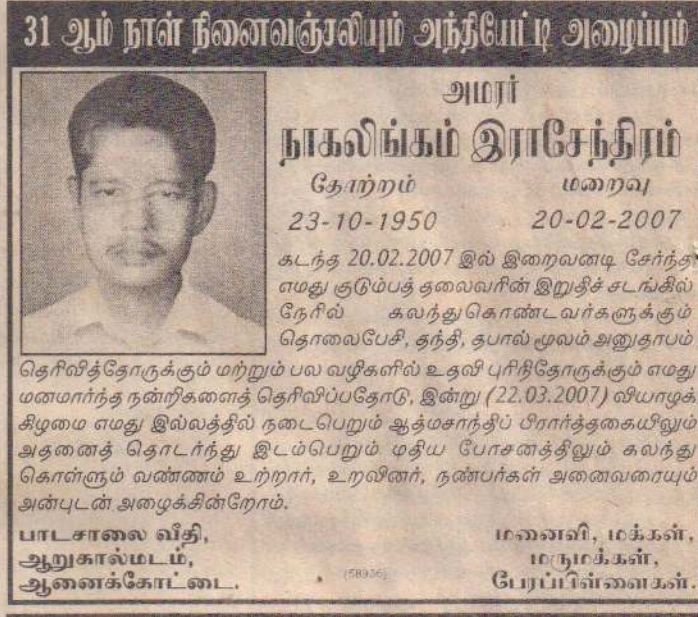 31 ஆம் நாள் நினைவஞ்சலியும் அந்தியேட்டி அழைப்பும்
அமரர்
நாகலிங்கம் இராசேந்திரம்
தோற்றம் மறைவு
23-10-1950 20-02-2007
கடந்த 20.02.2007 இல் இறைவனடி சேர்ந்த
எமது குடும்பத் தலைவரின் இறுதிச் சடங்கில்
நேரில் கலந்துகொண்டவர்களுக்கும்
தொலைபேசி, தந்தி, தபால் மூலம் அனுதாபம்
தெரிவித்தோருக்கும் மற்றும் பல வழிகளில் உதவி புரிந்தோருக்கும் எமது
மனமார்ந்த நன்றிகளைத் தெரிவிப்பதோடு, இன்று (22.03.2007) வியாழக்
கிழமை எமது இல்லத்தில் நடைபெறும் ஆத்மசாந்திப் பிரார்த்தகையிலும்
அதனைத் தொடர்ந்து இடம்பெறும் மதிய போசனத்திலும் கலந்து
கொள்ளும் வண்ணம் உற்றார், உறவினர், நண்பர்கள் அனைவரையும்
அன்புடன் அழைக்கின்றோம்.
பாடசாலை வீதி, மனைவி, மக்கள்,
ஆறுகால்மடம், மருமக்கள்,
ஆனைக்கோட்டை. (58936) பேரப்பிள்ளைகள்.